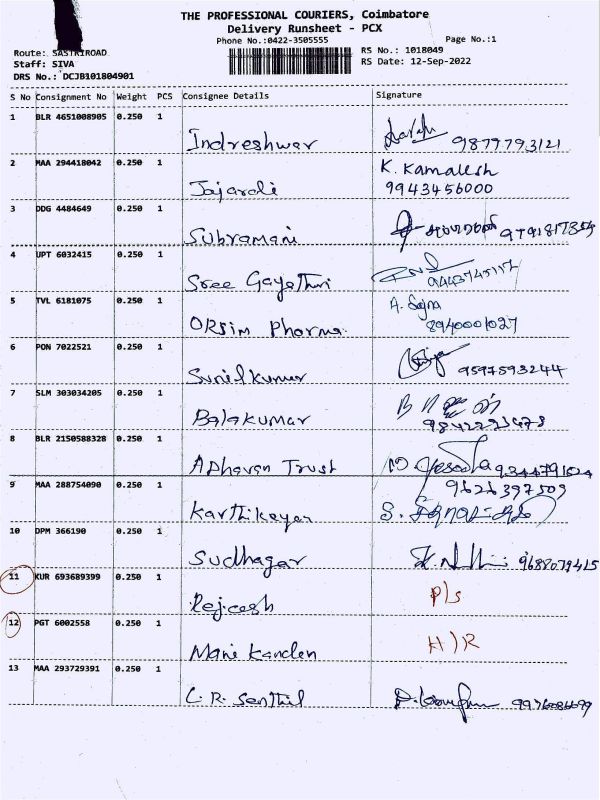 THE PROFESSIONAL COURIERS, Coimbatore
Delivery Runsheet - PCX
Phone No.:0422-3505555 Page No.:1
Route: SASTRIROAD RS No.: 1018049
Staff: SIVA RS Date: 12-Sep-2022
DRS No.: DCJB101804901
S No Consignment No Weight PCS Consignee Details Signature
1 BLR 4651008905 0.250 1
Indreshwar 9879793121
2 MAA 294418042 0.250 1 K. Kamalesh
Jajarali 9943456000
3 DDG 4484649 0.250 1
Subramani 9791817354
4 UPT 6032415 0.250 1
Sree Gayathri
5 TVL 6181075 0.250 1 A. Sajna
ORSim Pharma 8940001027
6 PON 7022521 0.250 1
Sunil Kumar 9597593244
7 SLM 303034205 0.250 1
Balakumar
8 BLR 2150588328 0.250 1
ADhavan Trust
9 MAA 288754090 0.250 1 9626397509
Karthikeyan S.
10 DPM 366190 0.250 1
Sudhagar 9688079415
11 KUR 693689399 0.250 1
Rejeesh P/s
12 PGT 6002558 0.250 1
Mani Kanden H)R
13 MAA 293729391 0.250 1
C. R. Senthil